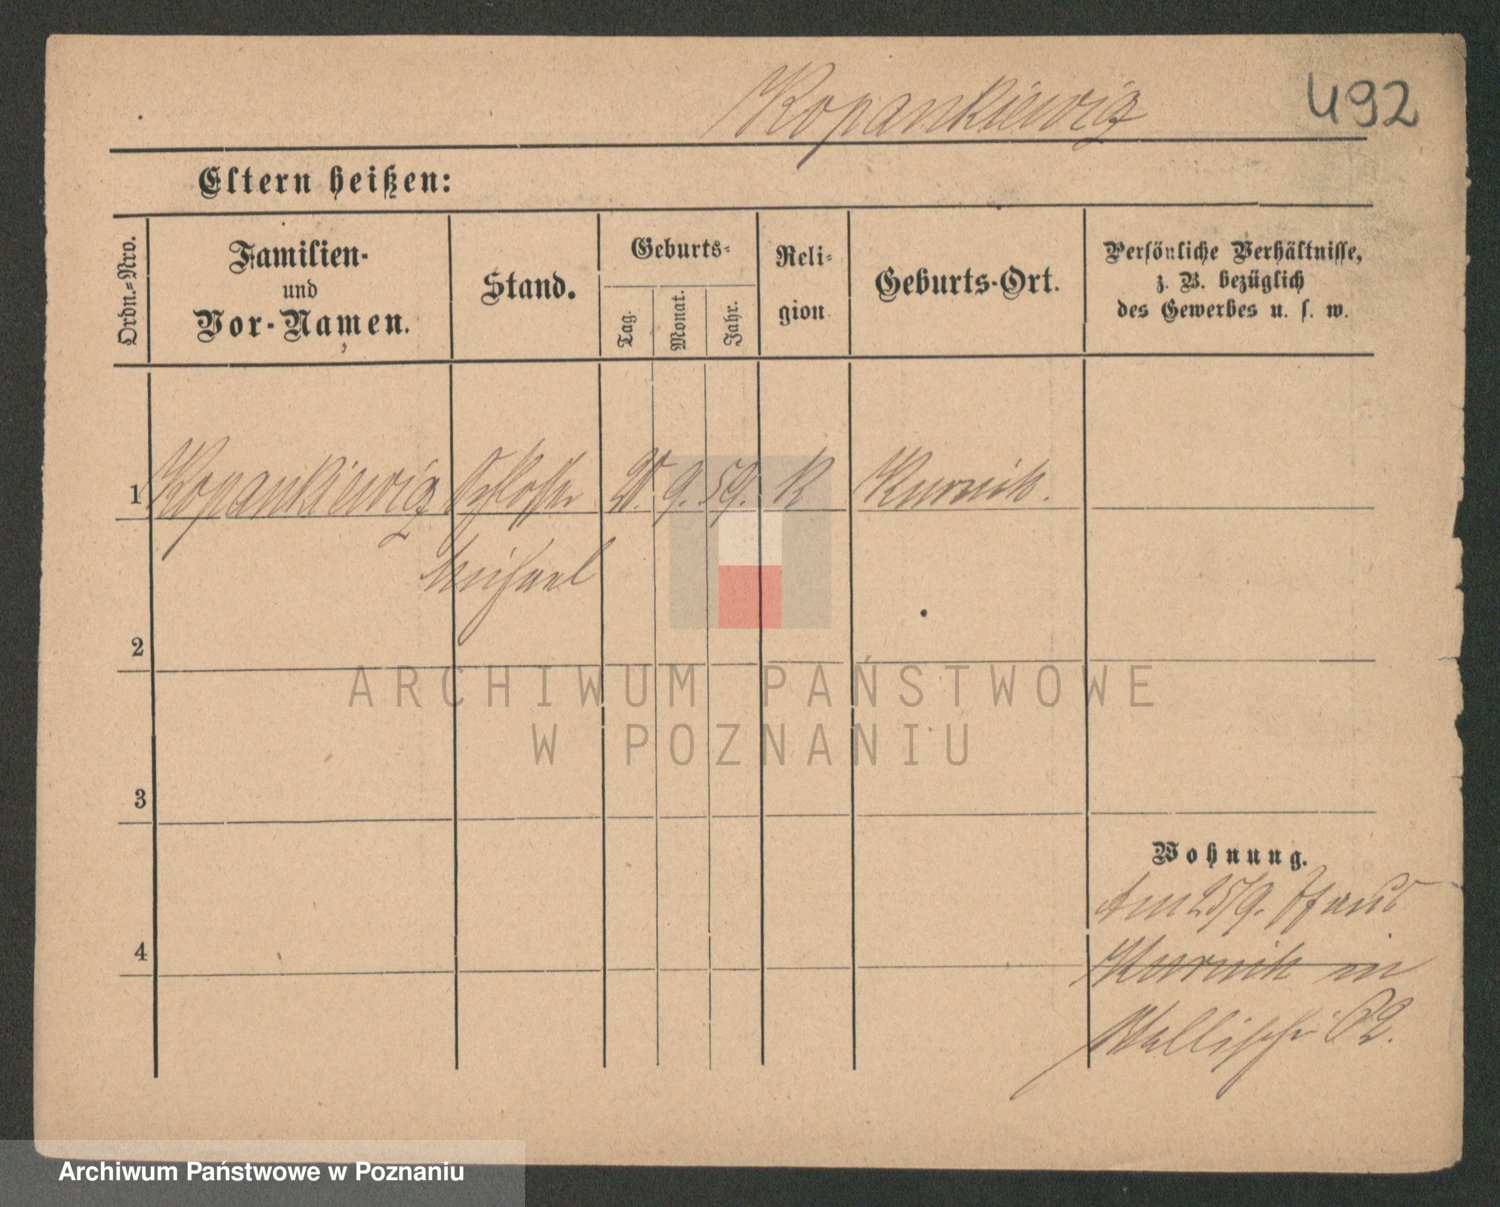 Kopankiewicz
492
Eltern heißen:
Ordn.-Nro.
Familien-
und
Vor-Namen.
Stand.
Geburts-
Tag.
Monat.
Jahr.
Reli-
gion
Geburts-Ort.
Persönliche Verhältnisse,
z. B. bezüglich
des Gewerbes u. s. w.
1 Kopankiewicz Schlosser 9. 59. K Kurnik.
Michael
2
3
4
Wohnung.
Am 25/9.
Kurnik in
Wallischei 62.
ARCHIWUM PAŃSTWOWE
W POZNANIU
Archiwum Państwowe w Poznaniu